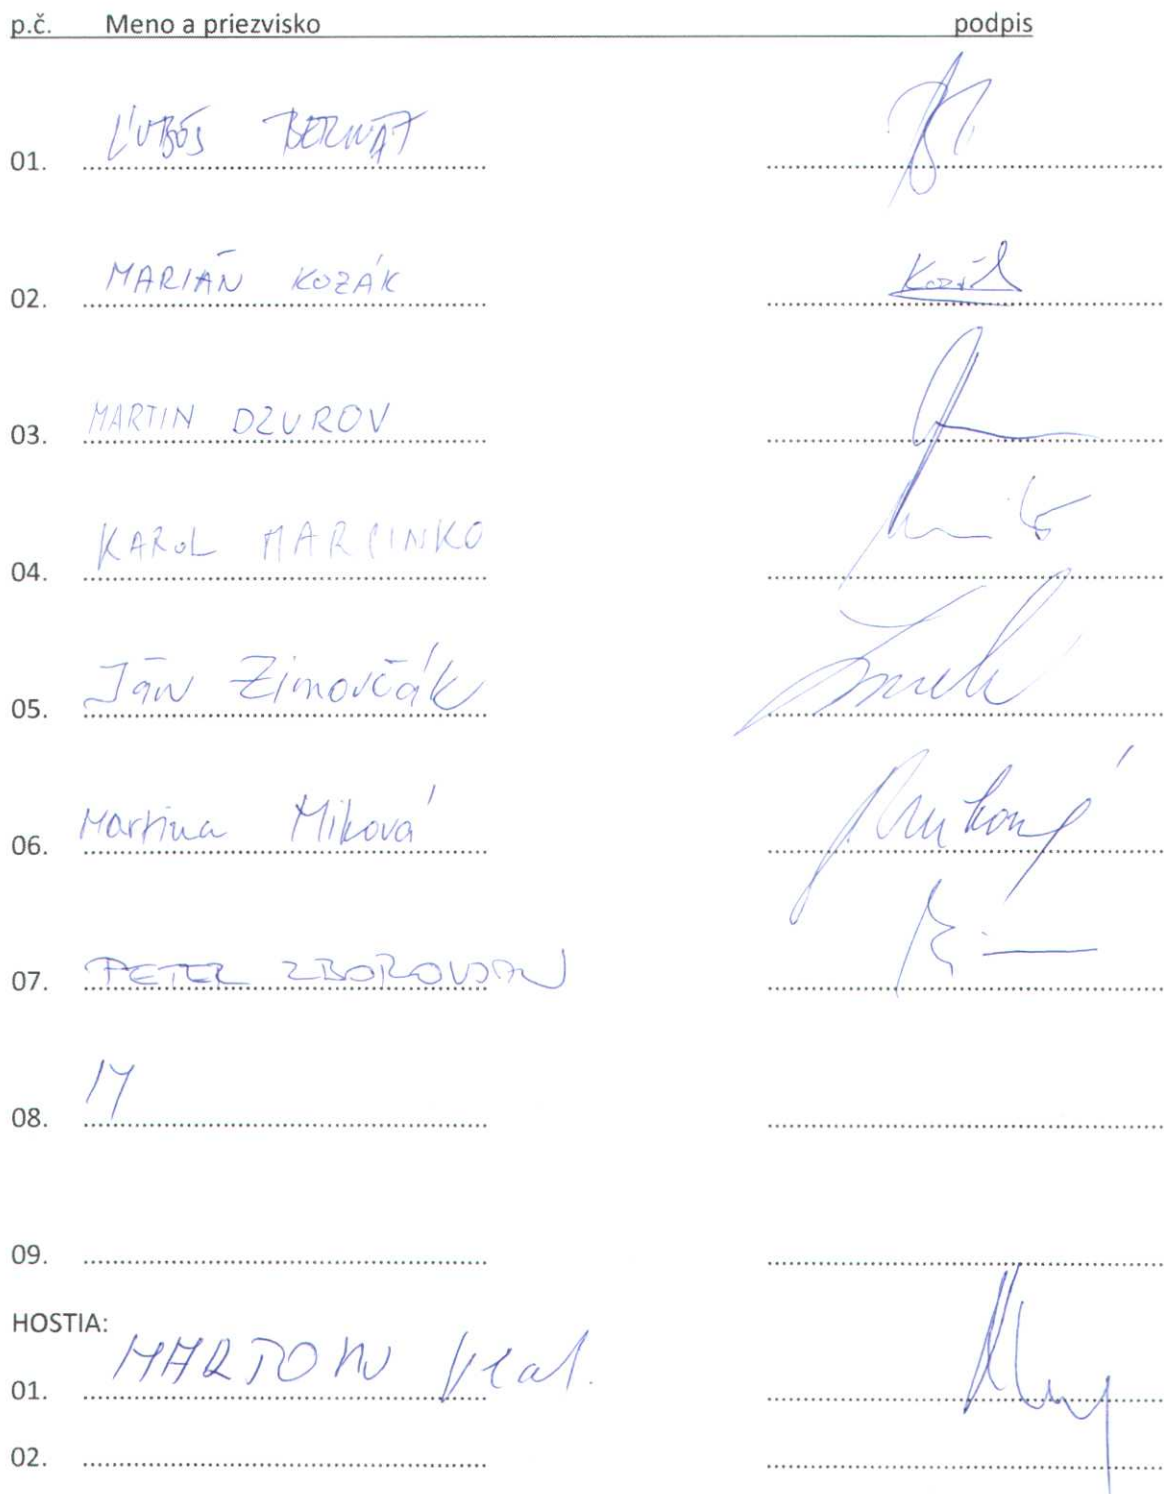 p.č. Meno a priezvisko podpis
01. ĽUBOŠ BERNÁT
02. MARIÁN KOZÁK Kozák
03. MARTIN DZUROV
04. KAROL MARCINKO
05. Ján Zimovčák
06. Martina Miková
07. PETER ZBOROVJAN
08.
09.
HOSTIA:
01. MARTON
02.